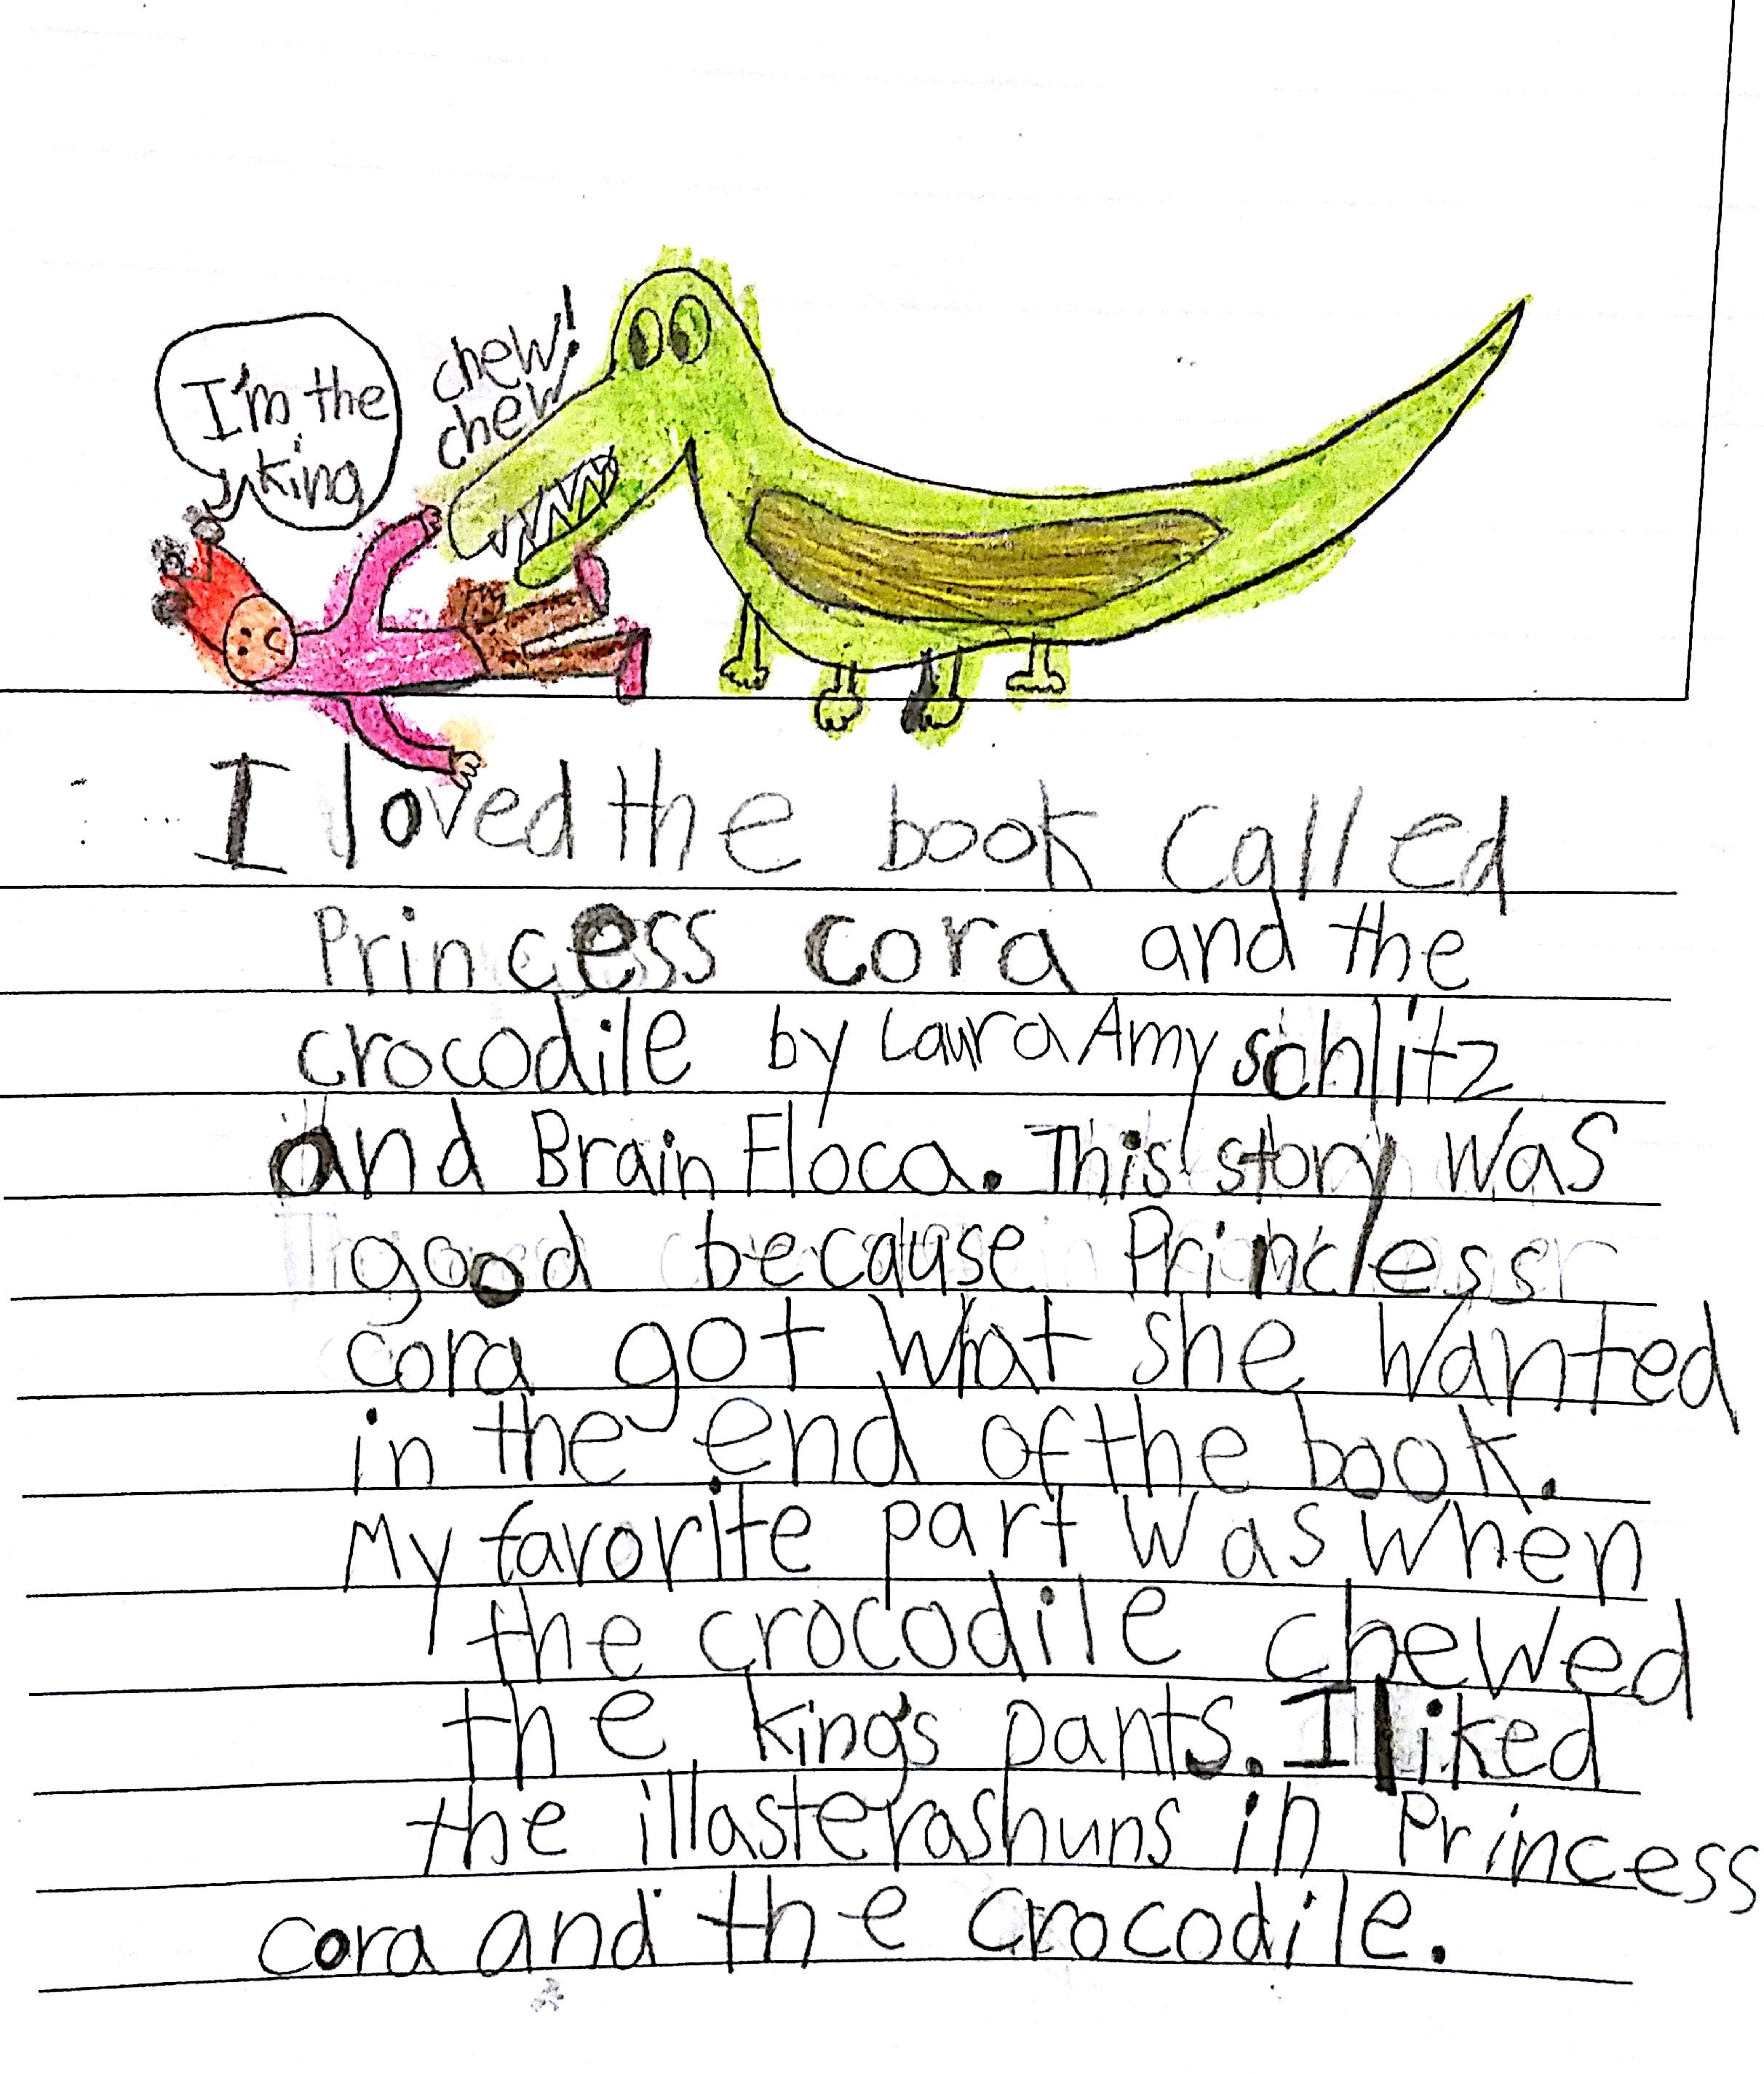 I'm the
king
chew!
chew!
I loved the book called
Princess cora and the
crocodile by Laura Amy schlitz
and Brain Floca. This story was
good because Princess
cora got what she wanted
in the end of the book.
My favorite part was when
the crocodile chewed
the king's pants. I liked
the illasterashuns in Princess
cora and the crocodile.